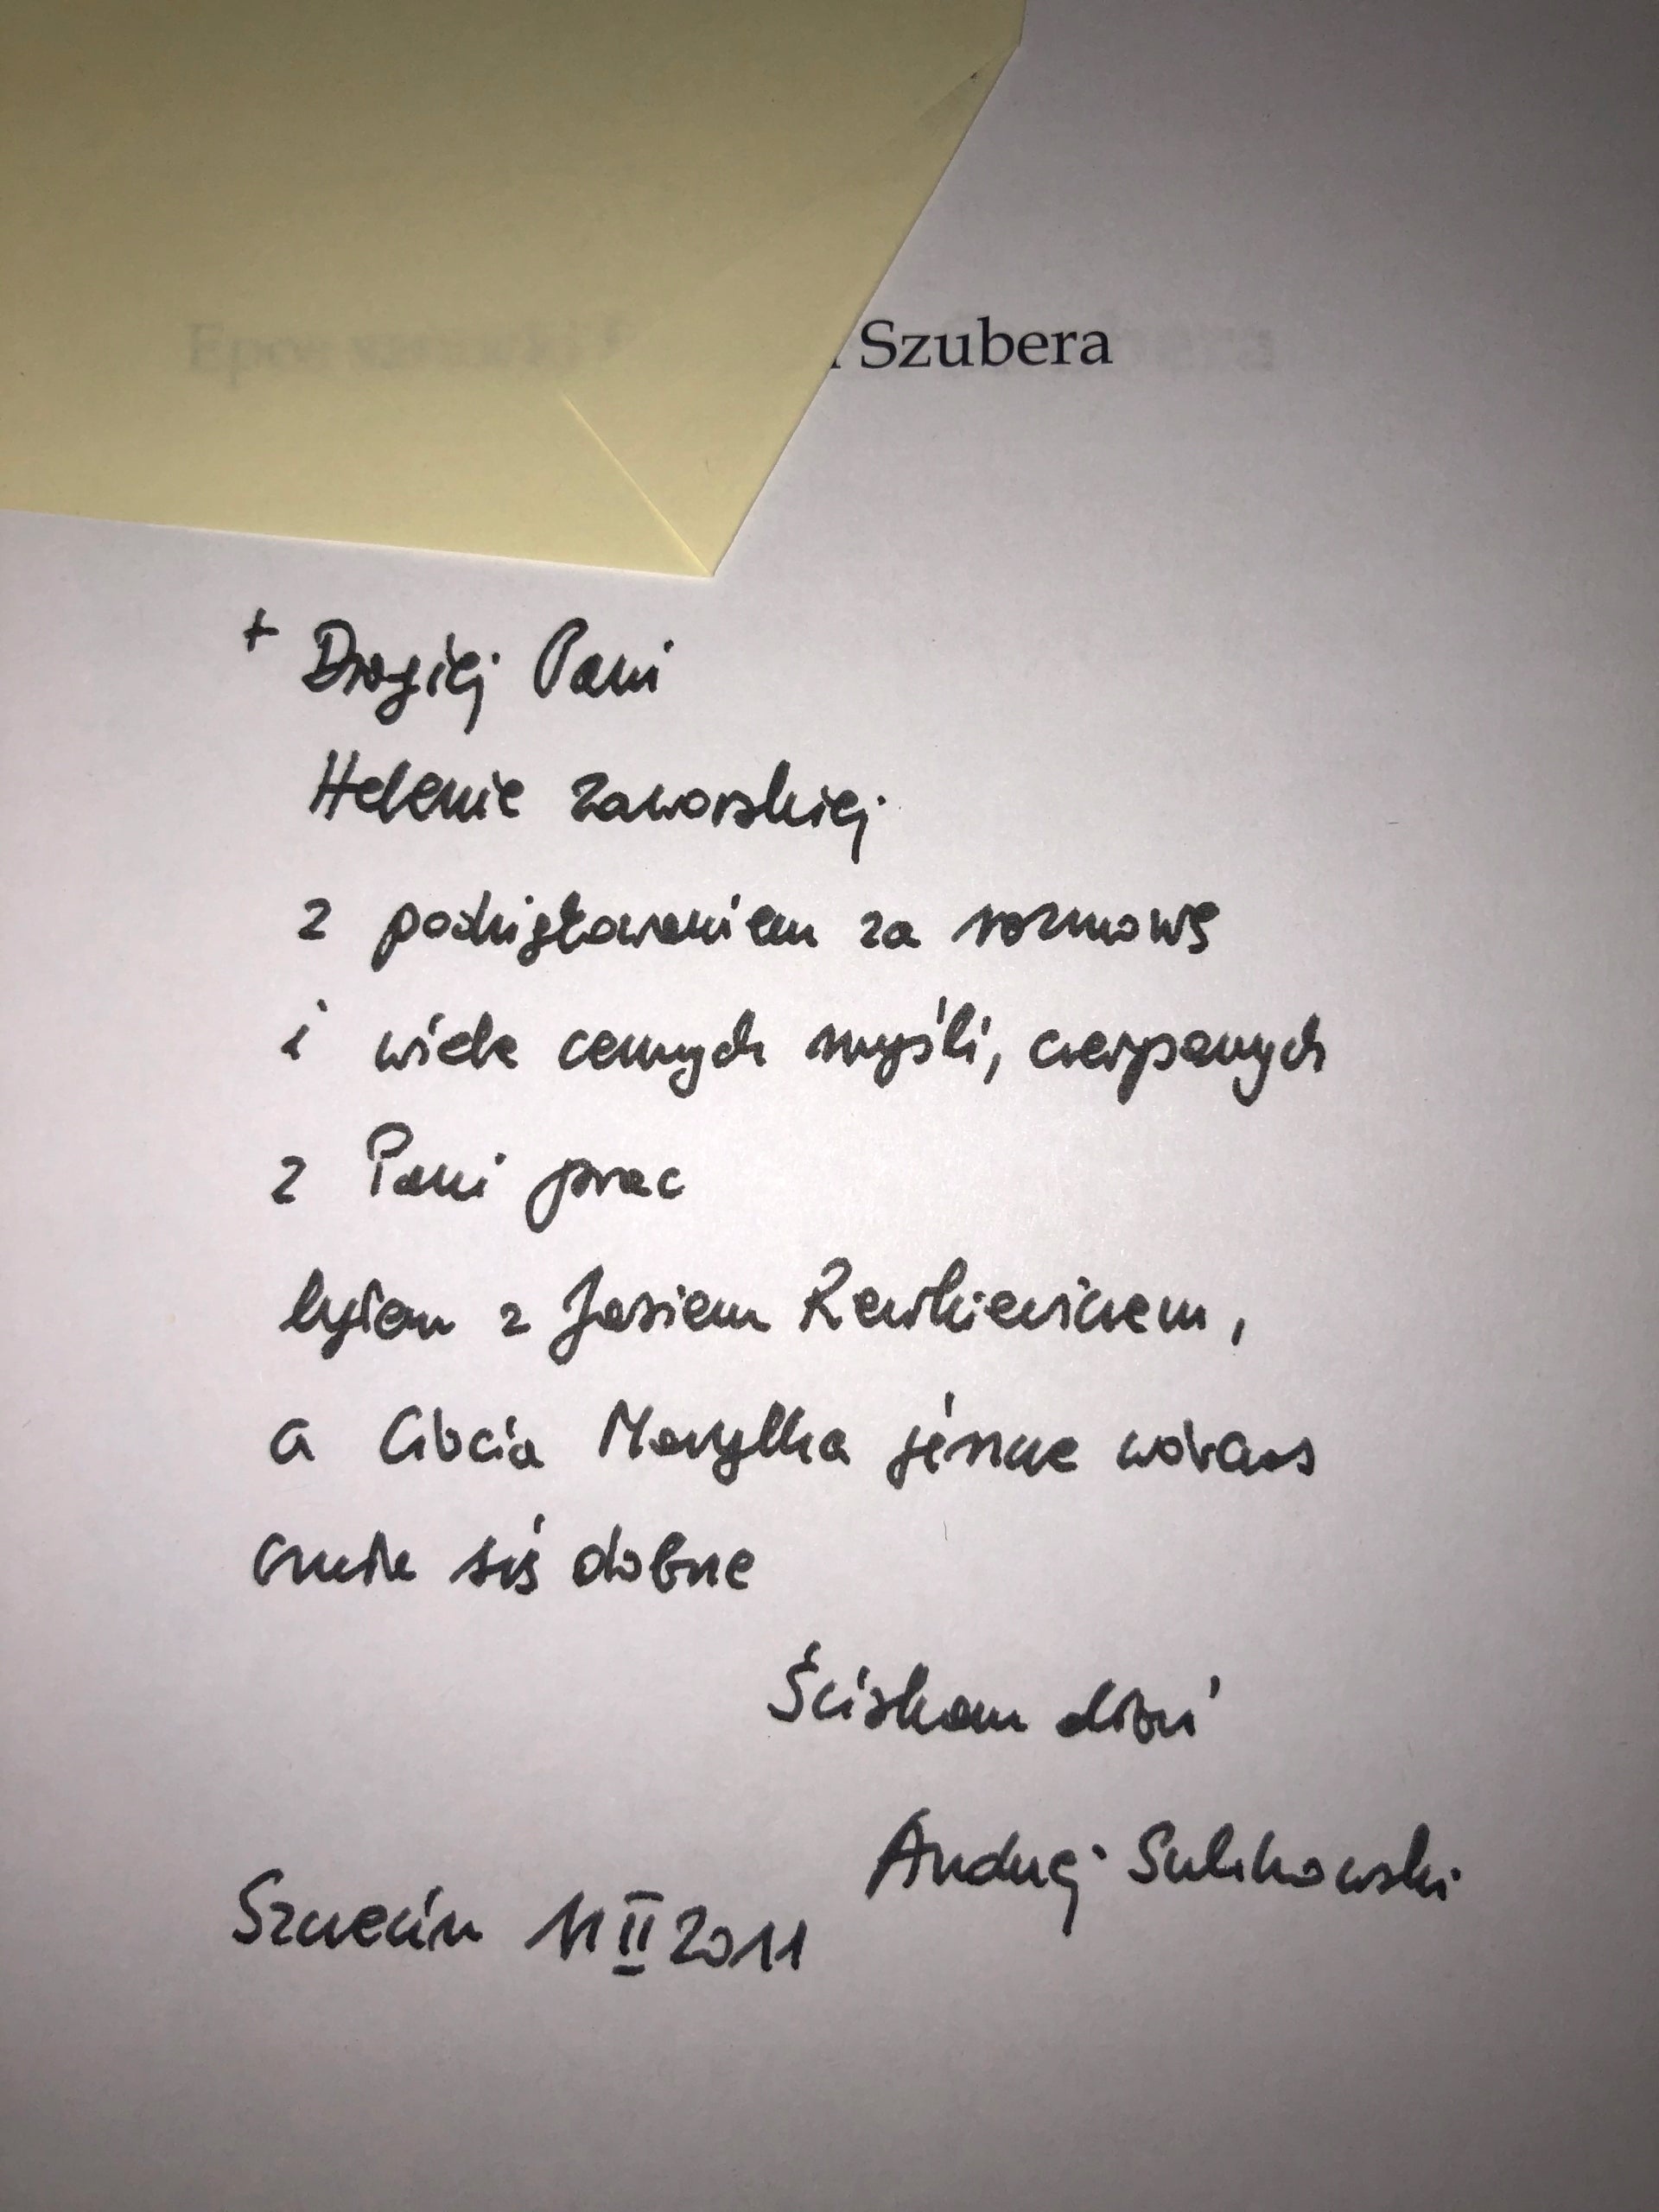 Szubera
+ Drogiej Pani
Helenie Zaworskiej
z podziękowaniem za rozmowę
i wiele cennych myśli, czerpanych
z Pani prac
byłem z Jasiem Rewkiewiczem,
a Ciocia Marylka jeszcze wówczas
czuła się dobrze
Ściskam dłoń
Andrzej Sulikowski
Szczecin 11 II 2011